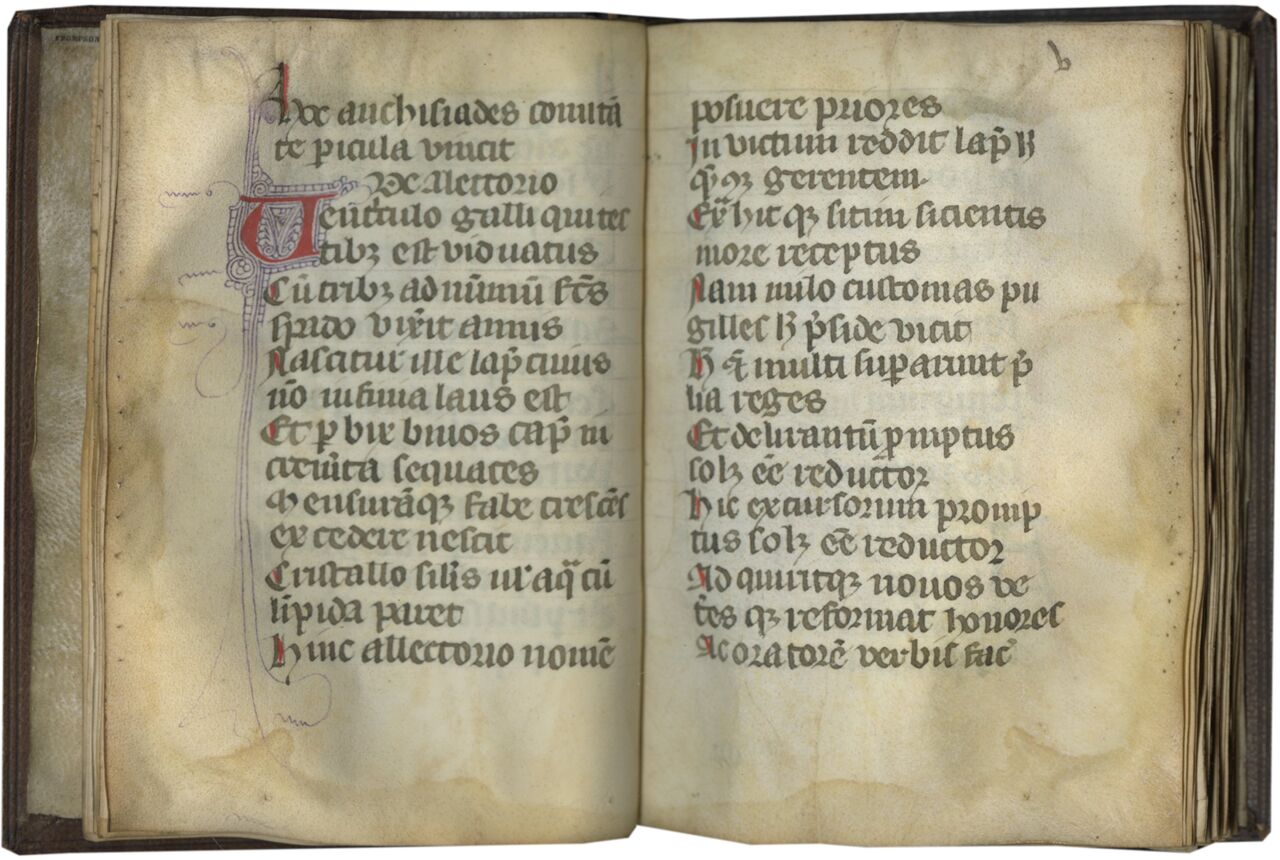 THOMPSON
Hoc anchisiades comitā
te picula vincit
De Alectorio
Uent'culo galli qui tes
tibꝫ est viduatus
Cū tribꝫ ad nūmū fc̄s
spado vixit annis
Nascitur ille lap̄ cuius
nō infima laus est
Et p bix binos cap̄ in
crem̄ta sequaces
Mensurāqꝫ fabe cresc̄es
excedere nescit
Cristallo silīs ul' aq̄ cū
limpida paret
Hinc allectorio nomē
b
posuere priores
Inuictum reddit lap̄ h
q̄mqꝫ gerentem
Exthit qꝫ sitim sicientis
more receptus
Nam milo customas pu
gilles h p̄side vicit
H̄ ⁊ multi supararunt p̄
lia reges
Et delirantū promptus
solꝫ eē reductor
Hic excursorum promp
tus solꝫ eē reductor
Adquiritqꝫ nouos ve
t̄es qꝫ reformat honores
Ac oratorē verbis fac'